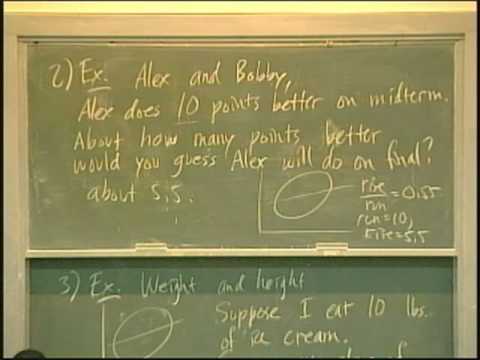 2) Ex. Alex and Bobby,
Alex does 10 points better on midterm.
About how many points better
would you guess Alex will do on final?
about 5.5.
rise
run
=0.55
run=10,
rise=5.5
3) Ex. Weight and height
Suppose I eat 10 lbs.
of ice cream.